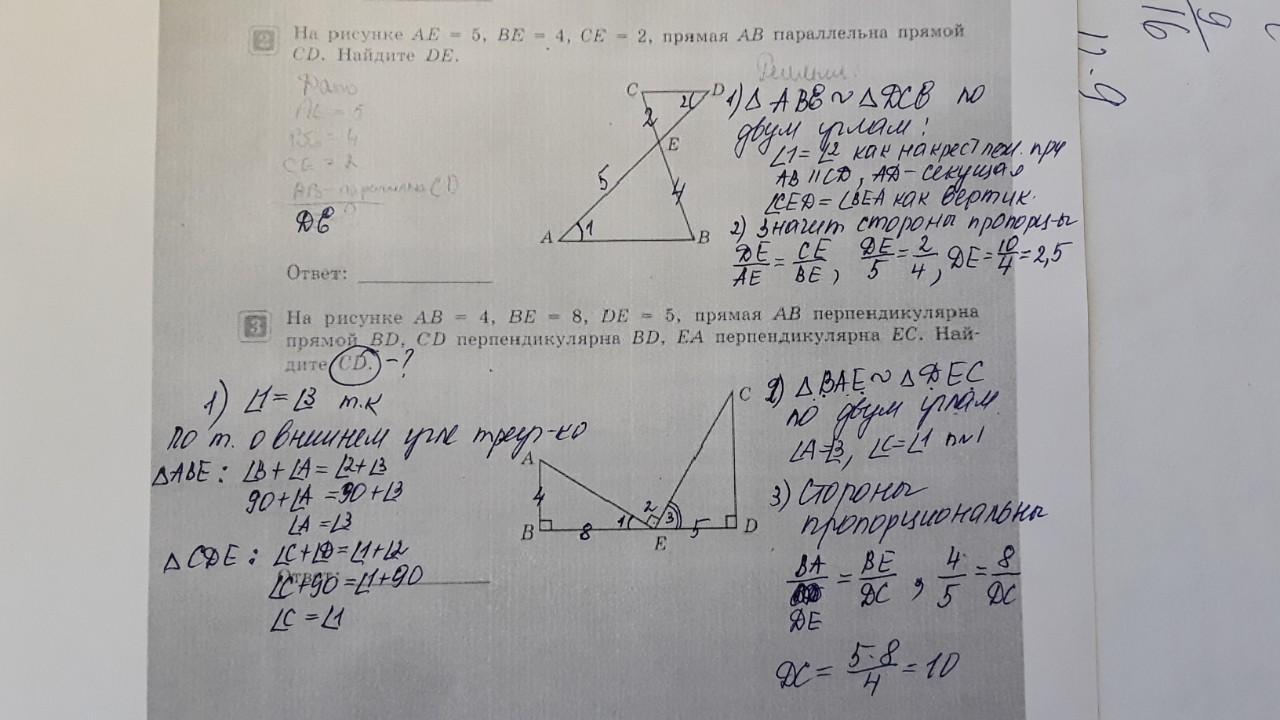 2 На рисунке AE = 5, BE = 4, CE = 2, прямая AB параллельна прямой
CD. Найдите DE.
Дано
AE = 5
BE = 4
CE = 2
AB - параллельна CD
DE
Ответ:
C D
2 2
E
5 4
A 1 B
Решение.
1) △ ABE ~ △ DCE по
двум углам:
∠1 = ∠2 как накрест леж. при
AB || CD, AD - секущая
∠CED = ∠BEA как вертик.
2) Значит стороны пропорц-ы
DE/AE = CE/BE, DE/5 = 2/4, DE = 10/4 = 2,5
3 На рисунке AB = 4, BE = 8, DE = 5, прямая AB перпендикулярна
прямой BD, CD перпендикулярна BD, EA перпендикулярна EC. Най-
дите CD. - ?
1) ∠1 = ∠3 т.к
по т. о внешнем угле треуг-ка
△ABE: ∠B + ∠A = ∠2 + ∠3
90 + ∠A = 90 + ∠3
∠A = ∠3
△CDE: ∠C + ∠D = ∠1 + ∠2
Ответ:
∠C + 90 = ∠1 + 90
∠C = ∠1
C
A
4 2
B 8 1 3 5 D
E
2) △ BAE ~ △ DEC
по двум углам
∠A = ∠3, ∠C = ∠1 п№1
3) Стороны
пропорциональны
BA/DE = BE/DC, 4/5 = 8/DC
DC = 5·8/4 = 10
9/16